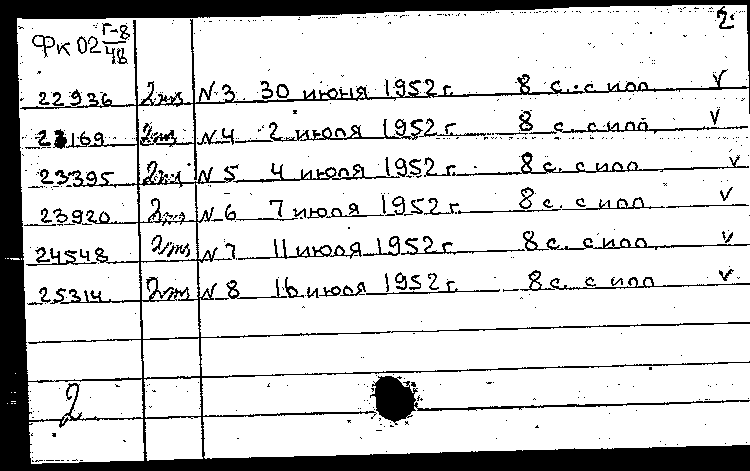 2.
Фк 02 Г-8/48
22936 2 экз №3 30 июня 1952 г. 8 с. с илл. V
23169 2 экз №4 2 июля 1952 г. 8 с. с илл. V
23395 2 экз №5 4 июля 1952 г. 8 с. с илл. V
23920 2 экз №6 7 июля 1952 г. 8 с. с илл. V
24548 2 экз №7 11 июля 1952 г. 8 с. с илл. V
25314 2 экз №8 16 июля 1952 г. 8 с. с илл. V
2